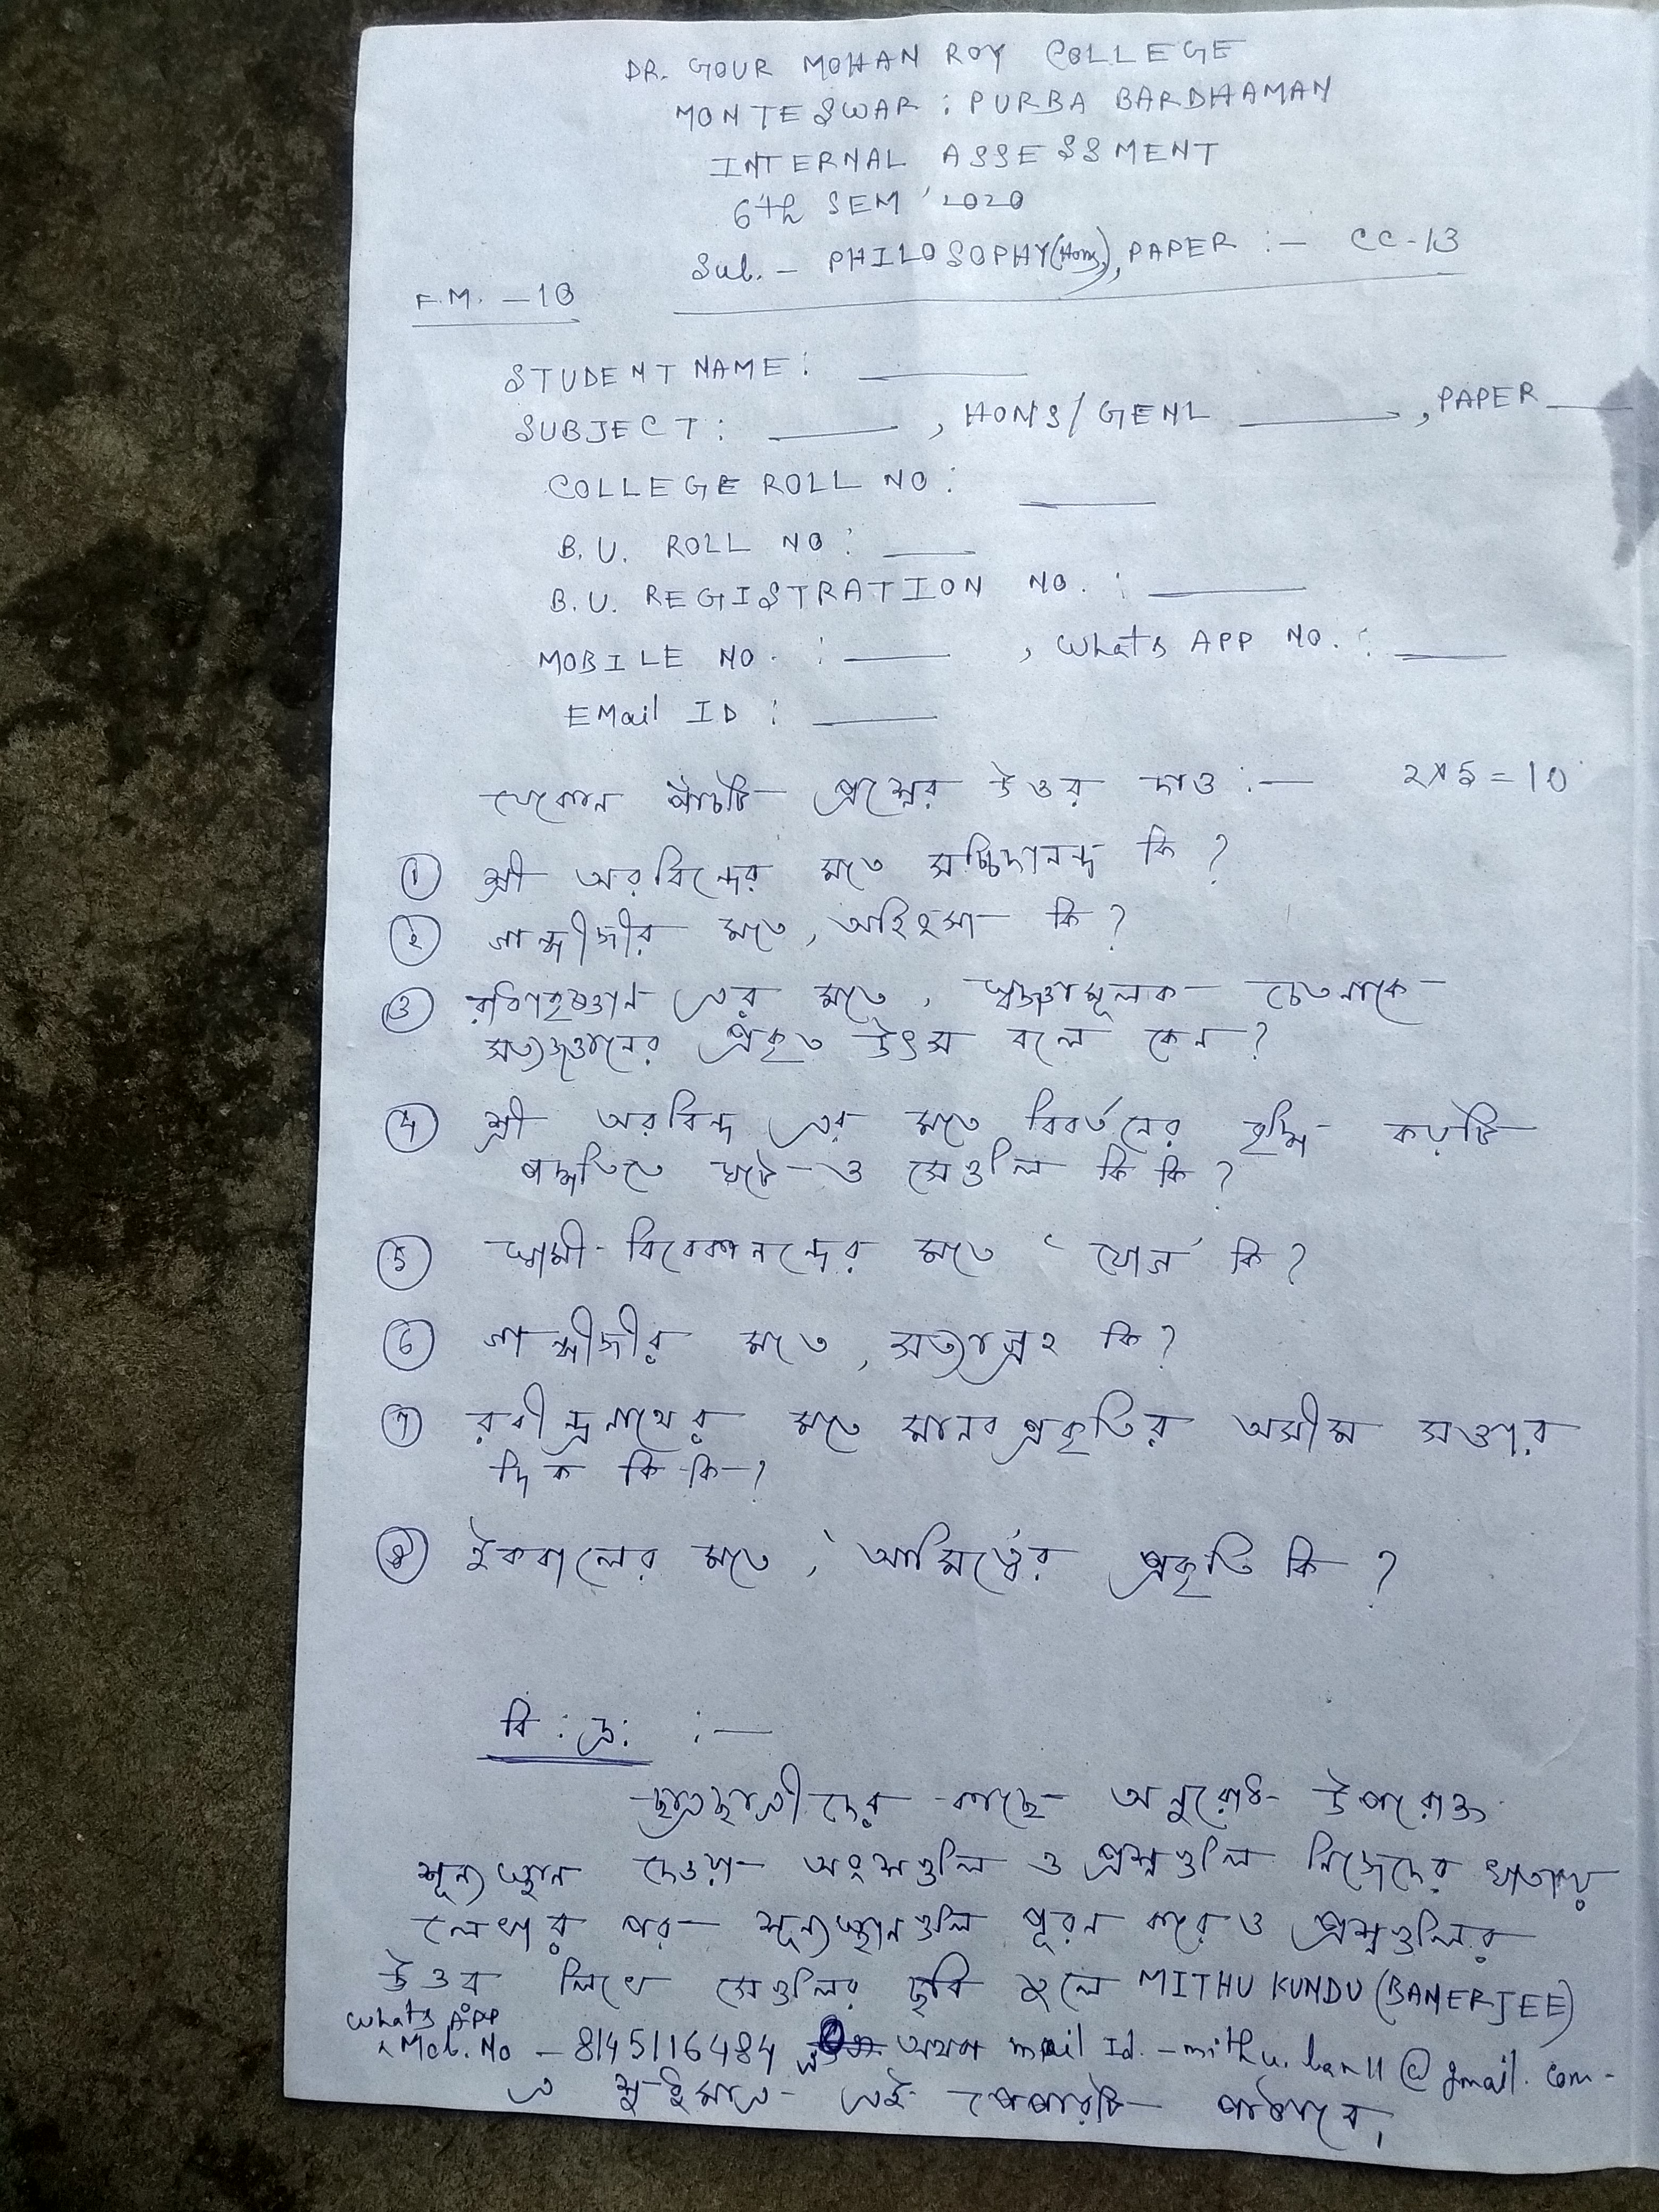 DR. GOUR MOHAN ROY COLLEGE
MONTESWAR : PURBA BARDHAMAN
INTERNAL ASSESSMENT
6th SEM '2020
Sub. - PHILOSOPHY(Hons), PAPER :- CC-13
F.M. - 10
STUDENT NAME : ____
SUBJECT : ____ , HONS/GENL ____ , PAPER ____
COLLEGE ROLL NO : ____
B.U. ROLL NO : ____
B.U. REGISTRATION NO. : ____
MOBILE NO. : ____ , Whats APP NO. : ____
EMail ID : ____
যেকোন পাঁচটি প্রশ্নের উত্তর দাও :— ২x5 = 10
① শ্রী অরবিন্দের মতে সচ্চিদানন্দ কি ?
② গান্ধীজীর মতে, অহিংসা কি ?
③ রাধাকৃষ্ণান এর মতে, স্বজ্ঞামূলক চেতনাকে
সত্যজ্ঞানের প্রকৃত উৎস বলে কেন ?
④ শ্রী অরবিন্দ এর মতে বিবর্তনের কয়টি
পদ্ধতিতে ঘটে ও সেগুলি কি কি ?
⑤ স্বামী বিবেকানন্দের মতে 'যোগ' কি ?
⑥ গান্ধীজীর মতে, সত্যাগ্রহ কি ?
⑦ রবীন্দ্রনাথের মতে মানব প্রকৃতির অসীম সত্তার
দিক কি কি ?
⑧ ইকবালের মতে, আমিত্বের প্রকৃতি কি ?
বি : দ্র: :—
ছাত্রছাত্রীদের কাছে অনুরোধ উপরোক্ত
শূন্যস্থান দেওয়া অংশগুলি ও প্রশ্নগুলি নিজেদের খাতায়
লেখার পর শূন্যস্থানগুলি পূরন করে ও প্রশ্নগুলির
উত্তর লিখে সেগুলির ছবি তুলে MITHU KUNDU (BANERJEE)
Whats APP
Mob. No - 8145116484 অথবা mail Id. - mithu.ban11@gmail.com-
এ শুধুমাত্র এই পেপারটি পাঠাবে,